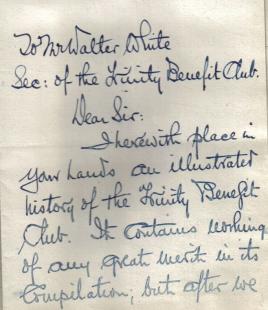 To Mr Walter White
Sec: of the Trinity Benefit Club.
Dear Sir:
I herewith place in
your hands an illustrated
history of the Trinity Benefit
Club. It contains nothing
of any great merit in its
Compilation; but after we